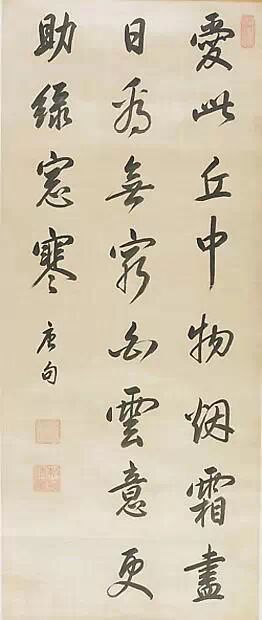 愛此丘中物烟霜盡
日看無窮白雲意更
助綠窓寒
唐句